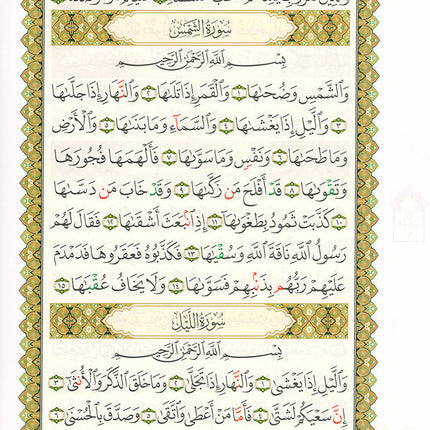 سُورَةُ الشَّمْسِ
بِسْمِ اللَّهِ الرَّحْمَٰنِ الرَّحِيمِ
وَالشَّمْسِ وَضُحَىٰهَا ١ وَالْقَمَرِ إِذَا تَلَىٰهَا ٢ وَالنَّهَارِ إِذَا جَلَّىٰهَا
٣ وَاللَّيْلِ إِذَا يَغْشَىٰهَا ٤ وَالسَّمَآءِ وَمَا بَنَىٰهَا ٥ وَالْأَرْضِ
وَمَا طَحَىٰهَا ٦ وَنَفْسٍ وَمَا سَوَّىٰهَا ٧ فَأَلْهَمَهَا فُجُورَهَا
وَتَقْوَىٰهَا ٨ قَدْ أَفْلَحَ مَن زَكَّىٰهَا ٩ وَقَدْ خَابَ مَن دَسَّىٰهَا
١٠ كَذَّبَتْ ثَمُودُ بِطَغْوَىٰهَا ١١ إِذِ انۢبَعَثَ أَشْقَىٰهَا ١٢ فَقَالَ لَهُمْ
رَسُولُ اللَّهِ نَاقَةَ اللَّهِ وَسُقْيَٰهَا ١٣ فَكَذَّبُوهُ فَعَقَرُوهَا فَدَمْدَمَ
عَلَيْهِمْ رَبُّهُم بِذَنۢبِهِمْ فَسَوَّىٰهَا ١٤ وَلَا يَخَافُ عُقْبَٰهَا ١٥
سُورَةُ اللَّيْلِ
بِسْمِ اللَّهِ الرَّحْمَٰنِ الرَّحِيمِ
وَاللَّيْلِ إِذَا يَغْشَىٰ ١ وَالنَّهَارِ إِذَا تَجَلَّىٰ ٢ وَمَا خَلَقَ الذَّكَرَ وَالْأُنثَىٰٓ ٣
إِنَّ سَعْيَكُمْ لَشَتَّىٰ ٤ فَأَمَّا مَنْ أَعْطَىٰ وَاتَّقَىٰ ٥ وَصَدَّقَ بِالْحُسْنَىٰ ٦